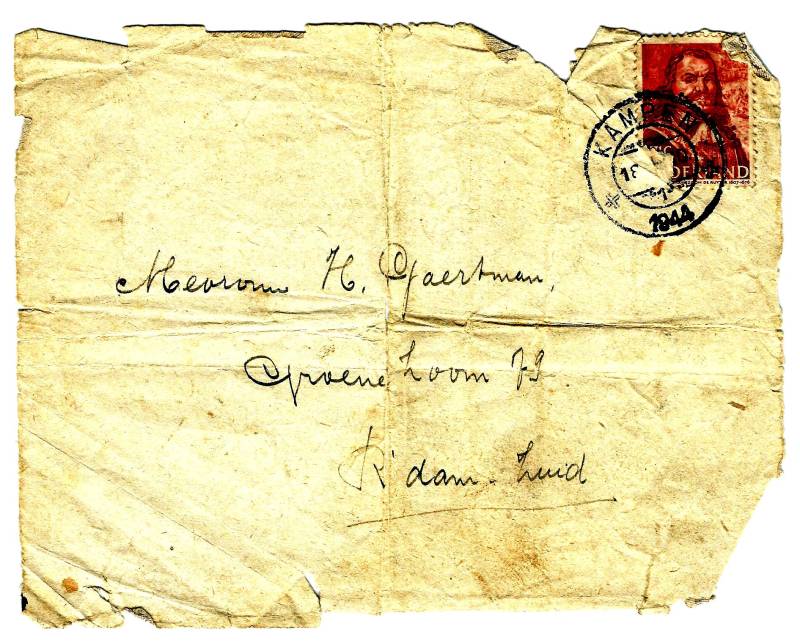 KAMPEN
18
1944
NEDERLAND
DE RUYTER 1607-1676
Mevrouw H. Gaertman,
Groene Zoom 73
R'dam-Zuid